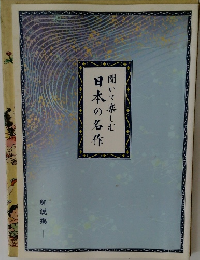 聞いて楽しむ
日本の名作
解説編 1